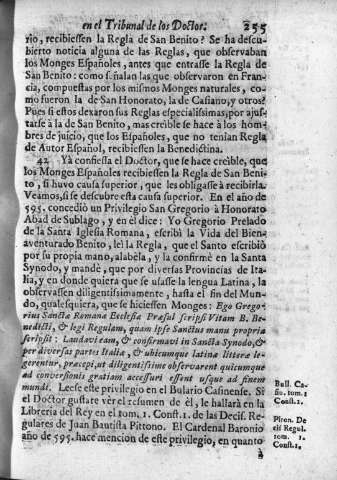 en el Tribunal de los Doctor. 255
rio, recibiessen la Regla de San Benito? Se ha descu-
bierto noticia alguna de las Reglas, que observaban
los Monges Españoles, antes que entrasse la Regla de
San Benito: como señalan las que observaron en Fran-
cia, compuestas por los mismos Monges naturales, co-
mo fueron la de San Honorato, la de Casiano, y otros?
Pues si estos dexaron sus Reglas especialissimas, por ajus-
tarse à la de San Benito, mas creìble se hace à los hom-
bres de juicio, que los Españoles, que no tenian Regla
de Autor Español, recibiessen la Benedictina.
42 Yà confiessa el Doctor, que se hace creìble, que
los Monges Españoles recibiessen la Regla de San Beni-
to, si huvo causa superior, que les obligasse à recibirla.
Veamos, si se descubre esta causa superior. En el año de
595. concediò un Privilegio San Gregorio à Honorato
Abad de Sublago, y en èl dice: Yo Gregorio Prelado
de la Santa Iglesia Romana, escribì la Vida del Bien-
aventurado Benito, leì la Regla, que el Santo escribiò
por su propia mano, alabèla, y la confirmè en la Santa
Synodo, y mandè, que por diversas Provincias de Ita-
lia, y en donde quiera que se usasse la lengua Latina, la
observassen diligentissimamente, hasta el fin del Mun-
do, qualesquiera, que se hiciessen Monges: Ego Grego-
rius Sanctæ Romanæ Ecclesiæ Præsul scripsi Vitam B. Be-
nedicti, & legi Regulam, quam ipse Sanctus manu propria
scripsit: Laudavi eam, & confirmavi in Sancta Synodo, &
per diversas partes Italiæ, & ubicumque latinæ litteræ le-
gerentur, præcepi, ut diligentissime observarent quicumque
ad conversionis gratiam accessuri essent usque ad finem
mundi. Leese este privilegio en el Bulario Casinense. Si
el Doctor gustare ver el resumen de èl, le hallarà en la
Libreria del Rey en el tom. 1. Const. 1. de las Decis. Re-
gulares de Juan Bautista Pittono. El Cardenal Baronio
año de 595. hace mencion de este privilegio, en quanto
à
Bull. Ca-
sin. tom. 1
Const. 1.
Piton. De
cis Regul.
tom. 1.
Const. 1.